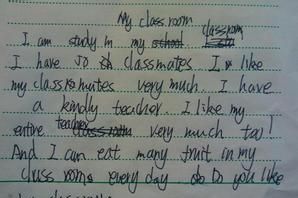 My class room
I am study in my classroom
I have 50 classmates I like
my classromates very much. I have
a kindly teacher. I like my
entire teacher very much too!
And I can eat many fruit in my
class room every day do Do you like